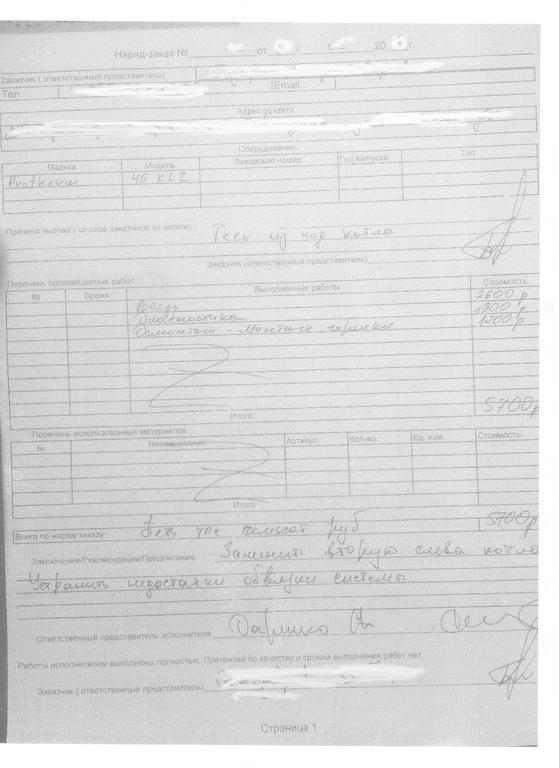 Наряд-заказ № от 20 г.
Заказчик ( ответственный представитель)
Тел.: Email:
Адрес объекта
Оборудование.
Марка Модель Заводской номер Год выпуска Тип.
Protherm 40 KLZ
Причина вызова ( со слов заказчика/ из заявки) Течь из под котла
Заказчик (ответственный представитель)
Перечень произведенных работ.
№ Время Выполненные работы Стоимость.
2600 р
Выезд 1900 р
Диагностика 1300 р
Демонтаж - Монтаж горелки
Итого : 5700 р
Перечень использованных материалов
№ Наименование. Артикул. Кол-во. Ед. изм. Стоимость.
Итого :
Всего по наряд-заказу: Пять тыс семьсот руб 5700 р
Заключение/Рекомендации/Предписания: Заменить вторую слева котла
Устранить недостатки обвязки системы
Ответственный представитель исполнителя
Работы исполнителем выполнены полностью. Претензий по качеству и срокам выполнения работ нет.
Заказчик ( ответственный представитель)
Страница 1